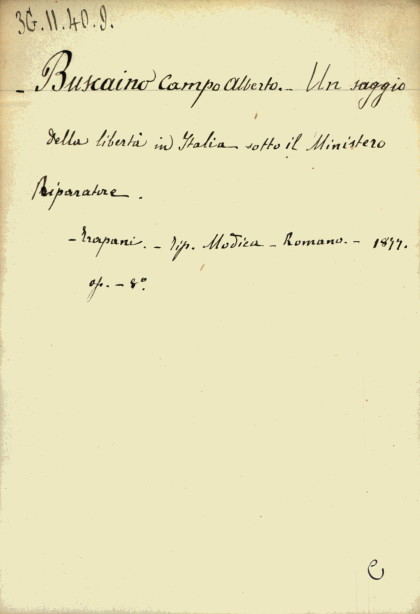 3G.11.40.9.
- Buscaino Campo Alberto. - Un saggio
della libertà in Italia sotto il Ministero
Riparatore.
- Trapani. - Tip. Modica - Romano. - 1877.
op. - 8°.
e